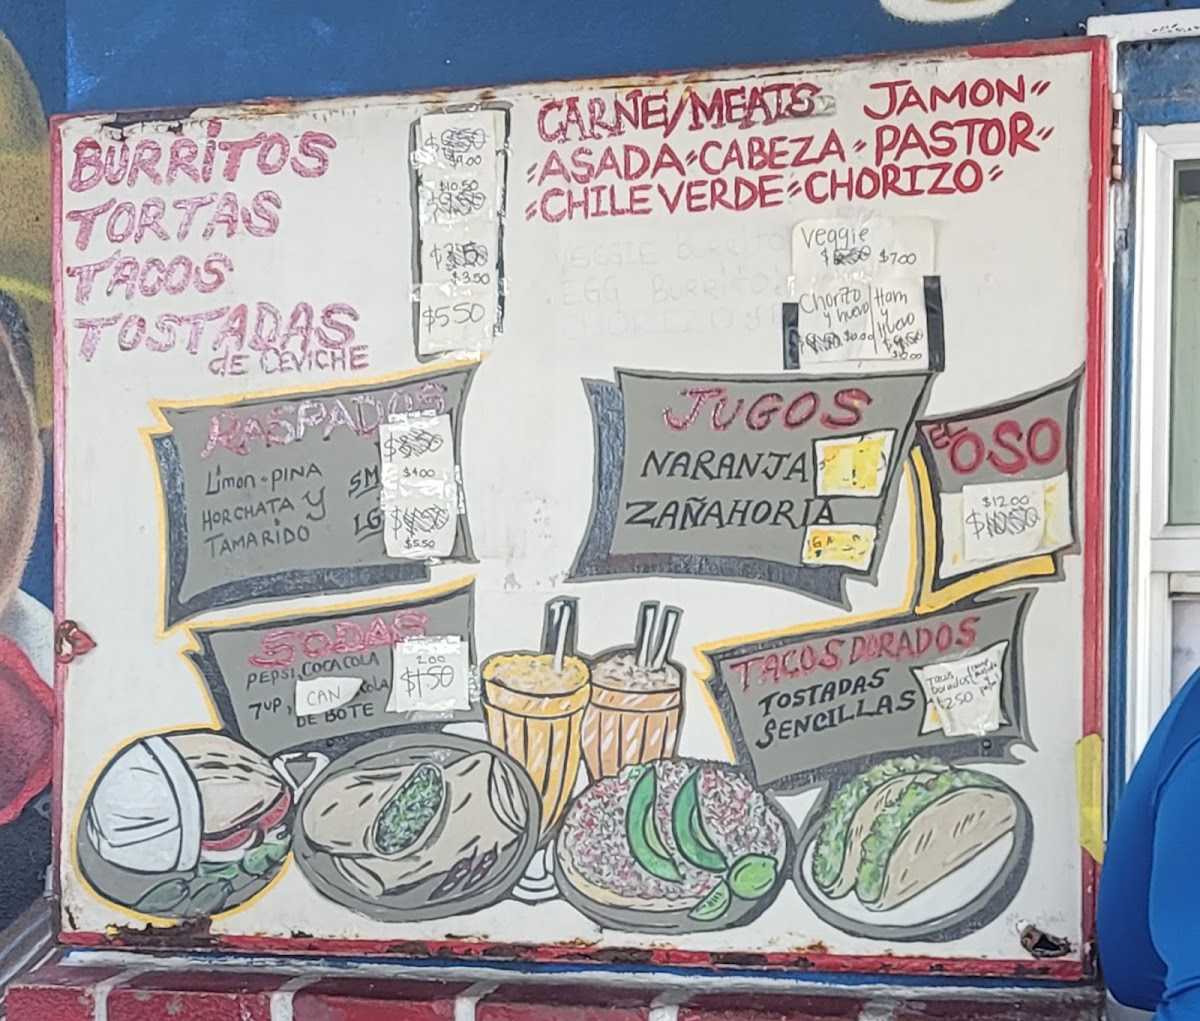 BURRITOS
$9.00
TORTAS
$10.50
TACOS
$3.50
TOSTADAS
$5.50
de CEVICHE
CARNE/MEATS JAMON"
"ASADA"CABEZA"PASTOR"
"CHILE VERDE"CHORIZO"
VEGGIE BURRITO
EGG BURRITO
Veggie
$7.00
Chorizo y huevo
Ham y Huevo
$10.00
RASPADOS
Limon-PINA
HORCHATA Y
TAMARIDO
SM
$4.00
LG
$5.50
JUGOS
NARANJA
ZAÑAHORIA
EL OSO
$12.00
$10.50
SODAS
PEPSI, COCA COLA
7UP, CAN Cola
DE BOTE
2.00
$1.50
TACOS DORADOS
TOSTADAS
SENCILLAS
Tacos
Dorados
$2.50